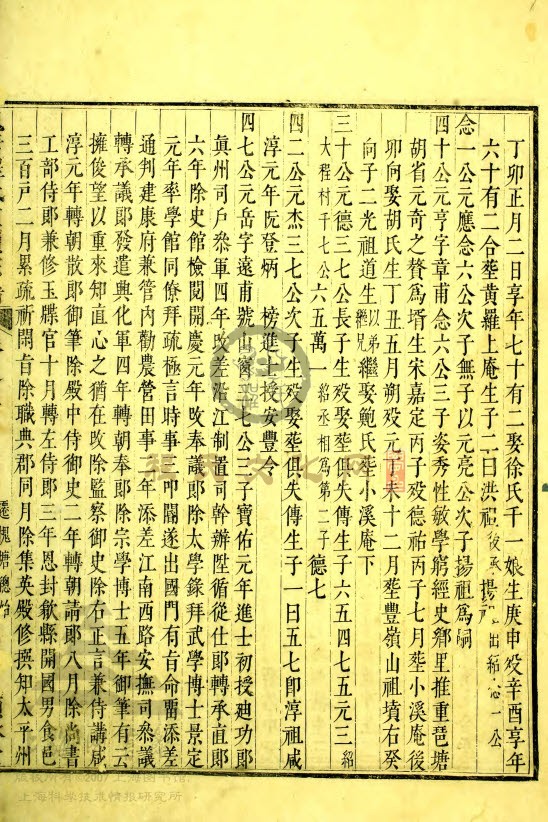 丁卯正月二日享年七十有二娶徐氏千一娘生庚申歿辛酉享年
六十有二合塟黄羅上庵生子二曰洪祖後承揚祖出紹念一公
念一公元應念六公次子無子以元亮公次子揚祖爲嗣
四十公元亨字章甫念六公三子姿秀性敏學窮經史鄉里推重琵琶塘
胡省元奇之贅爲壻生宋嘉定丙子歿德祐丙子七月塟小溪庵後
卯向娶胡氏生丁丑五月朔歿元 未十二月塟豐嶺山祖墳右癸
向子二光祖道生以弟繼兄繼娶鮑氏塟小溪庵下
三十公元德三七公長子生歿娶塟俱失傳生子六五四七五元三紹
大程村千七公六五萬一紹丞相爲第二子德七
四二公元杰三七公次子生歿娶塟俱失傳生子一曰五七卽淳祖咸
淳元年阮登炳榜進士授安豐令
四七公元岳字遠甫號山窗三七公三子寶佑元年進士初授廸功郎
眞州司戶叅軍四年改差沿江制置司幹辦陞循從仕郎轉承直郎
六年除史館檢閱開慶元年改奉議郎除太學錄拜武學博士景定
元年率學館同僚拜疏極言時事三叩閽遂出國門有旨命畱添差
通判建康府兼管內勸農營田事二年添差江南西路安撫司叅議
轉承議郎發遣興化軍四年轉朝奉郎除宗學博士五年御筆有云
擁俊望以重來知直心之猶在改除監察御史除右正言兼侍講咸
淳元年轉朝散郎御筆除殿中侍御史二年轉朝請郎八月除尚書
工部侍郎兼修玉牒官十月轉左侍郎三年恩封歙縣開國男食邑
三百戶二月累疏祈閒旨除職典郡同月除集英殿修撰知太平州
遷槐塘聰
程氏文化网
版权所有©2007上海图书馆
上海科学技术情报研究所